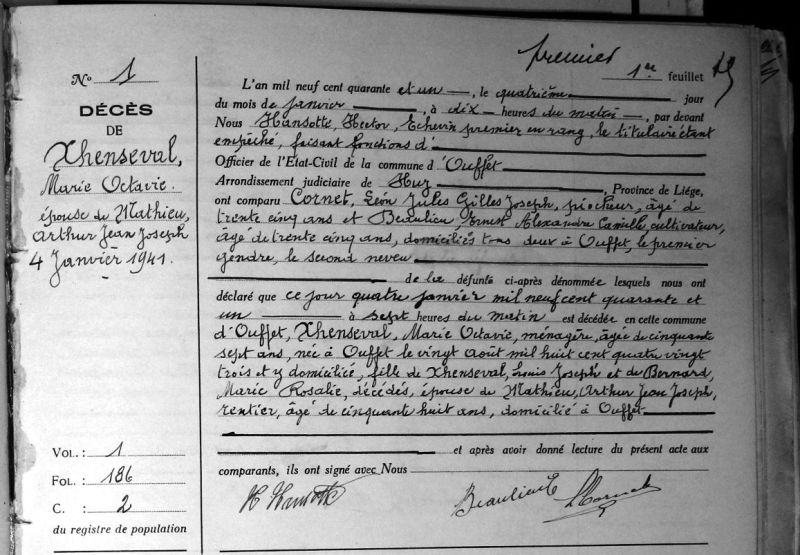 premier
1er feuillet
No 1
DÉCÈS
DE
Xhenseval,
Marie Octavie.
épouse de Mathieu,
Arthur Jean Joseph
4 Janvier 1941.
VOL. : 1
FOL. : 186
C. : 2
du registre de population
L'an mil neuf cent quarante et un, le quatrième jour
du mois de janvier, à dix heures du matin, par devant
Nous Hansotte, Hector, Echevin premier en rang, le titulaire étant
empêché, faisant fonctions d'
Officier de l'Etat-Civil de la commune d'Ouffet
Arrondissement judiciaire de Huy, Province de Liége,
ont comparu Cornet, Léon Jules Gilles Joseph, piocheur, âgé de
trente cinq ans et Beaulieu, Ernest Alexandre Camille, cultivateur,
âgé de trente cinq ans, domiciliés tous deux à Ouffet, le premier
gendre, le second neveu
de la défunte ci-après dénommée lesquels nous ont
déclaré que ce jour quatre janvier mil neuf cent quarante et
un à sept heures du matin est décédée en cette commune
d'Ouffet, Xhenseval, Marie Octavie, ménagère, âgée de cinquante
sept ans, née à Ouffet le vingt août mil huit cent quatre vingt
trois et y domiciliée, fille de Xhenseval, Louis Joseph et de Bernard,
Marie Rosalie, décédés, épouse de Mathieu, Arthur Jean Joseph,
rentier, âgé de cinquante huit ans, domicilié à Ouffet
et après avoir donné lecture du présent acte aux
comparants, ils ont signé avec Nous
H Hansotte Beaulieu E LCornet